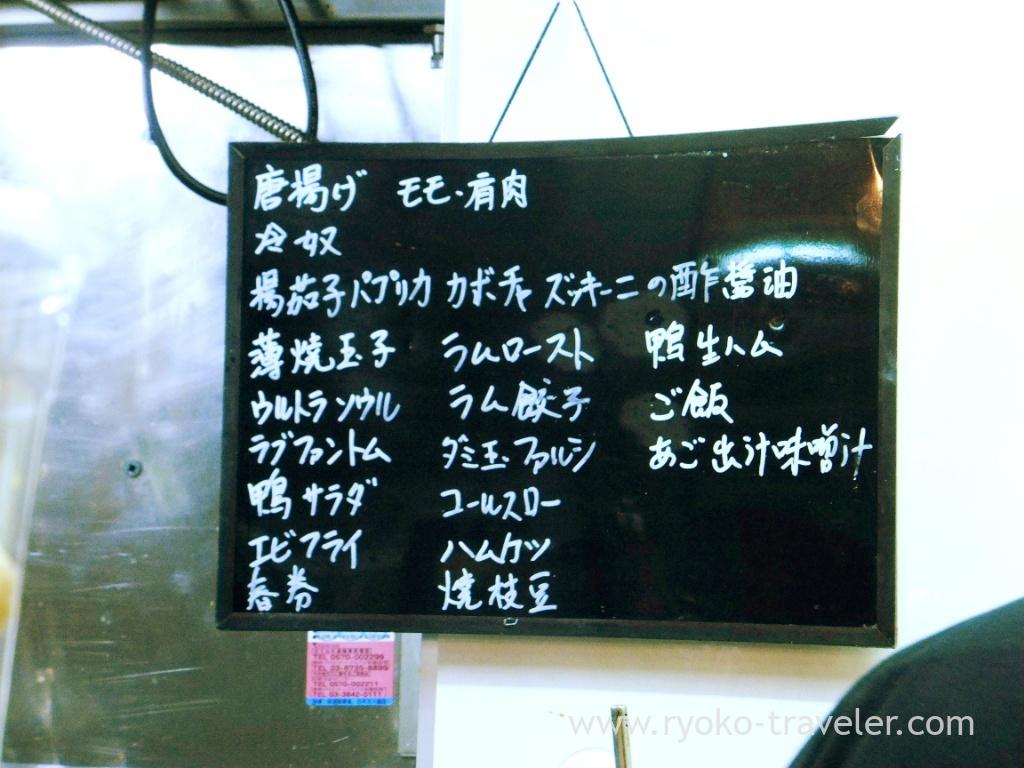 唐揚げ モモ・肩肉
冷奴
揚茄子パプリカ カボチャ ズッキーニの酢醤油
薄焼玉子 ラムロースト 鴨生ハム
ウルトラソウル ラム餃子 ご飯
ラブファントム ダミ玉・ファルシ あご出汁味噌汁
鴨サラダ コールスロー
エビフライ ハムカツ
春巻 焼枝豆
TEL 0570-002299
TEL 0570-002211
TEL 03-3842-0111
www.ryoko-traveler.com